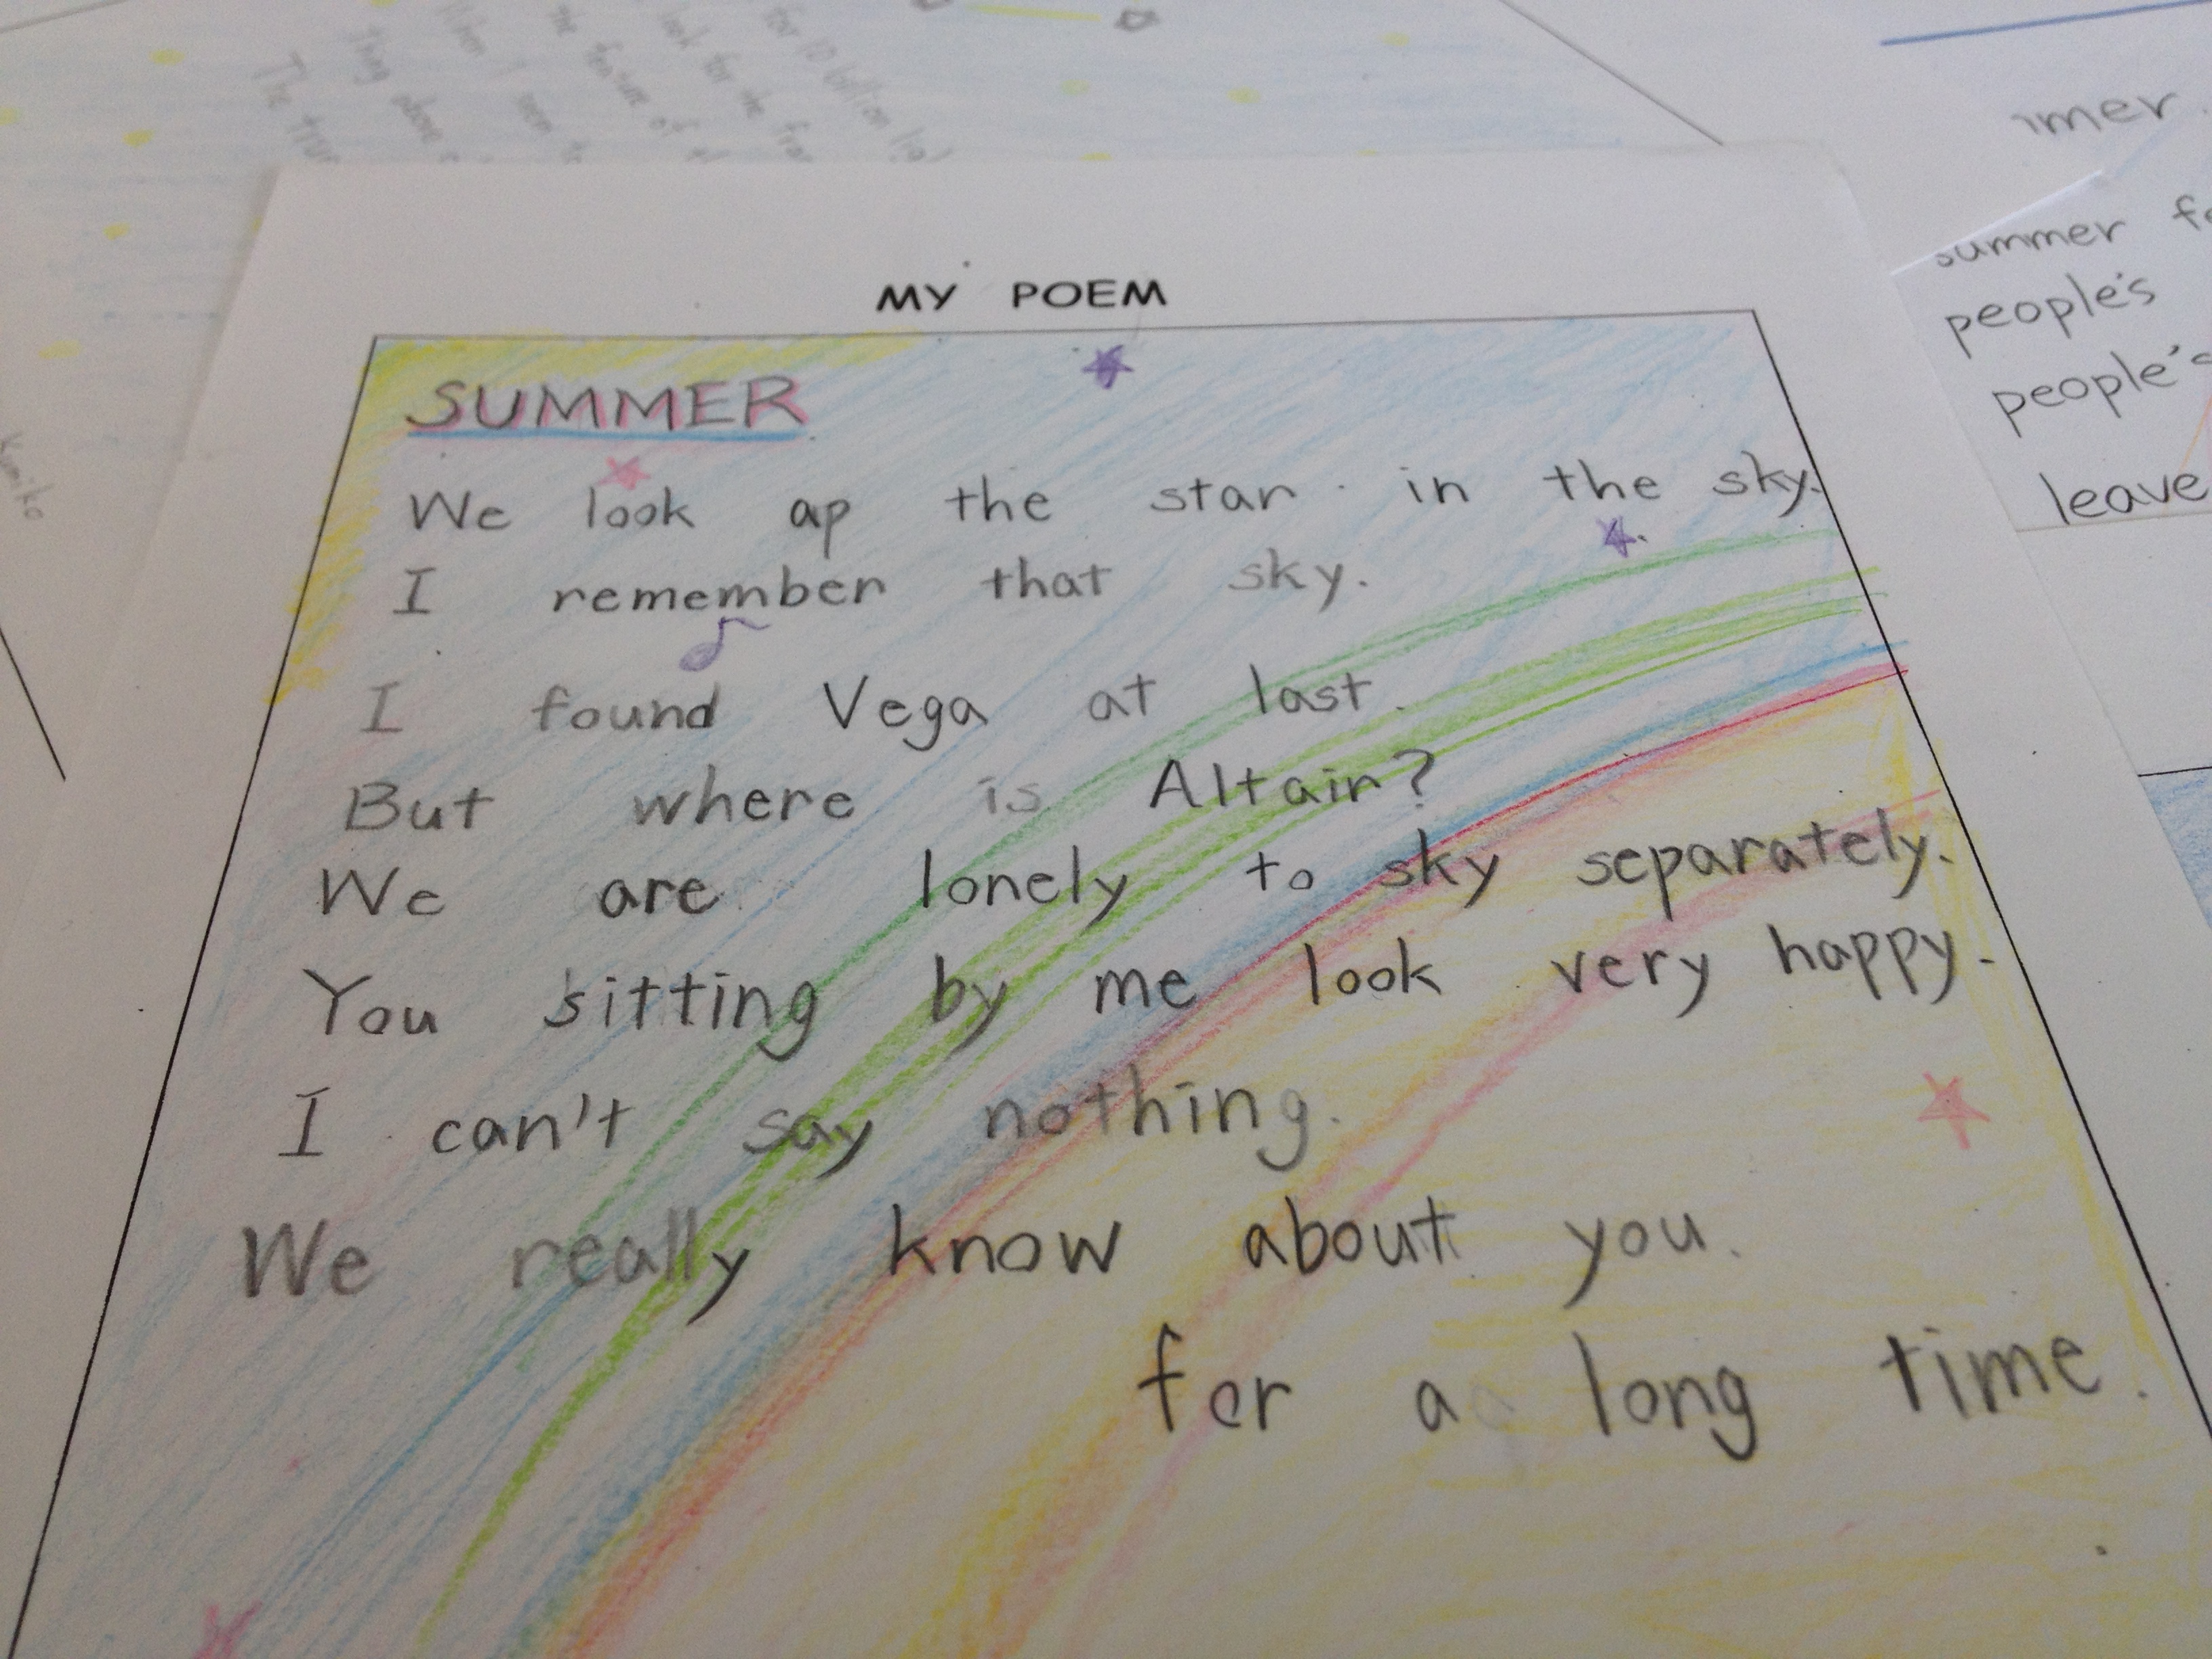 for 10 billion
look for the
the feature of
When I seem to
Thing above
The
Kumiko
MY POEM
SUMMER
We look ap the star in the sky.
I remember that sky.
I found Vega at last.
But where is Altair?
We are lonely to sky separately.
You sitting by me look very happy.
I can't say nothing.
We really know about you.
for a long time.
summer
people's
people's
leave